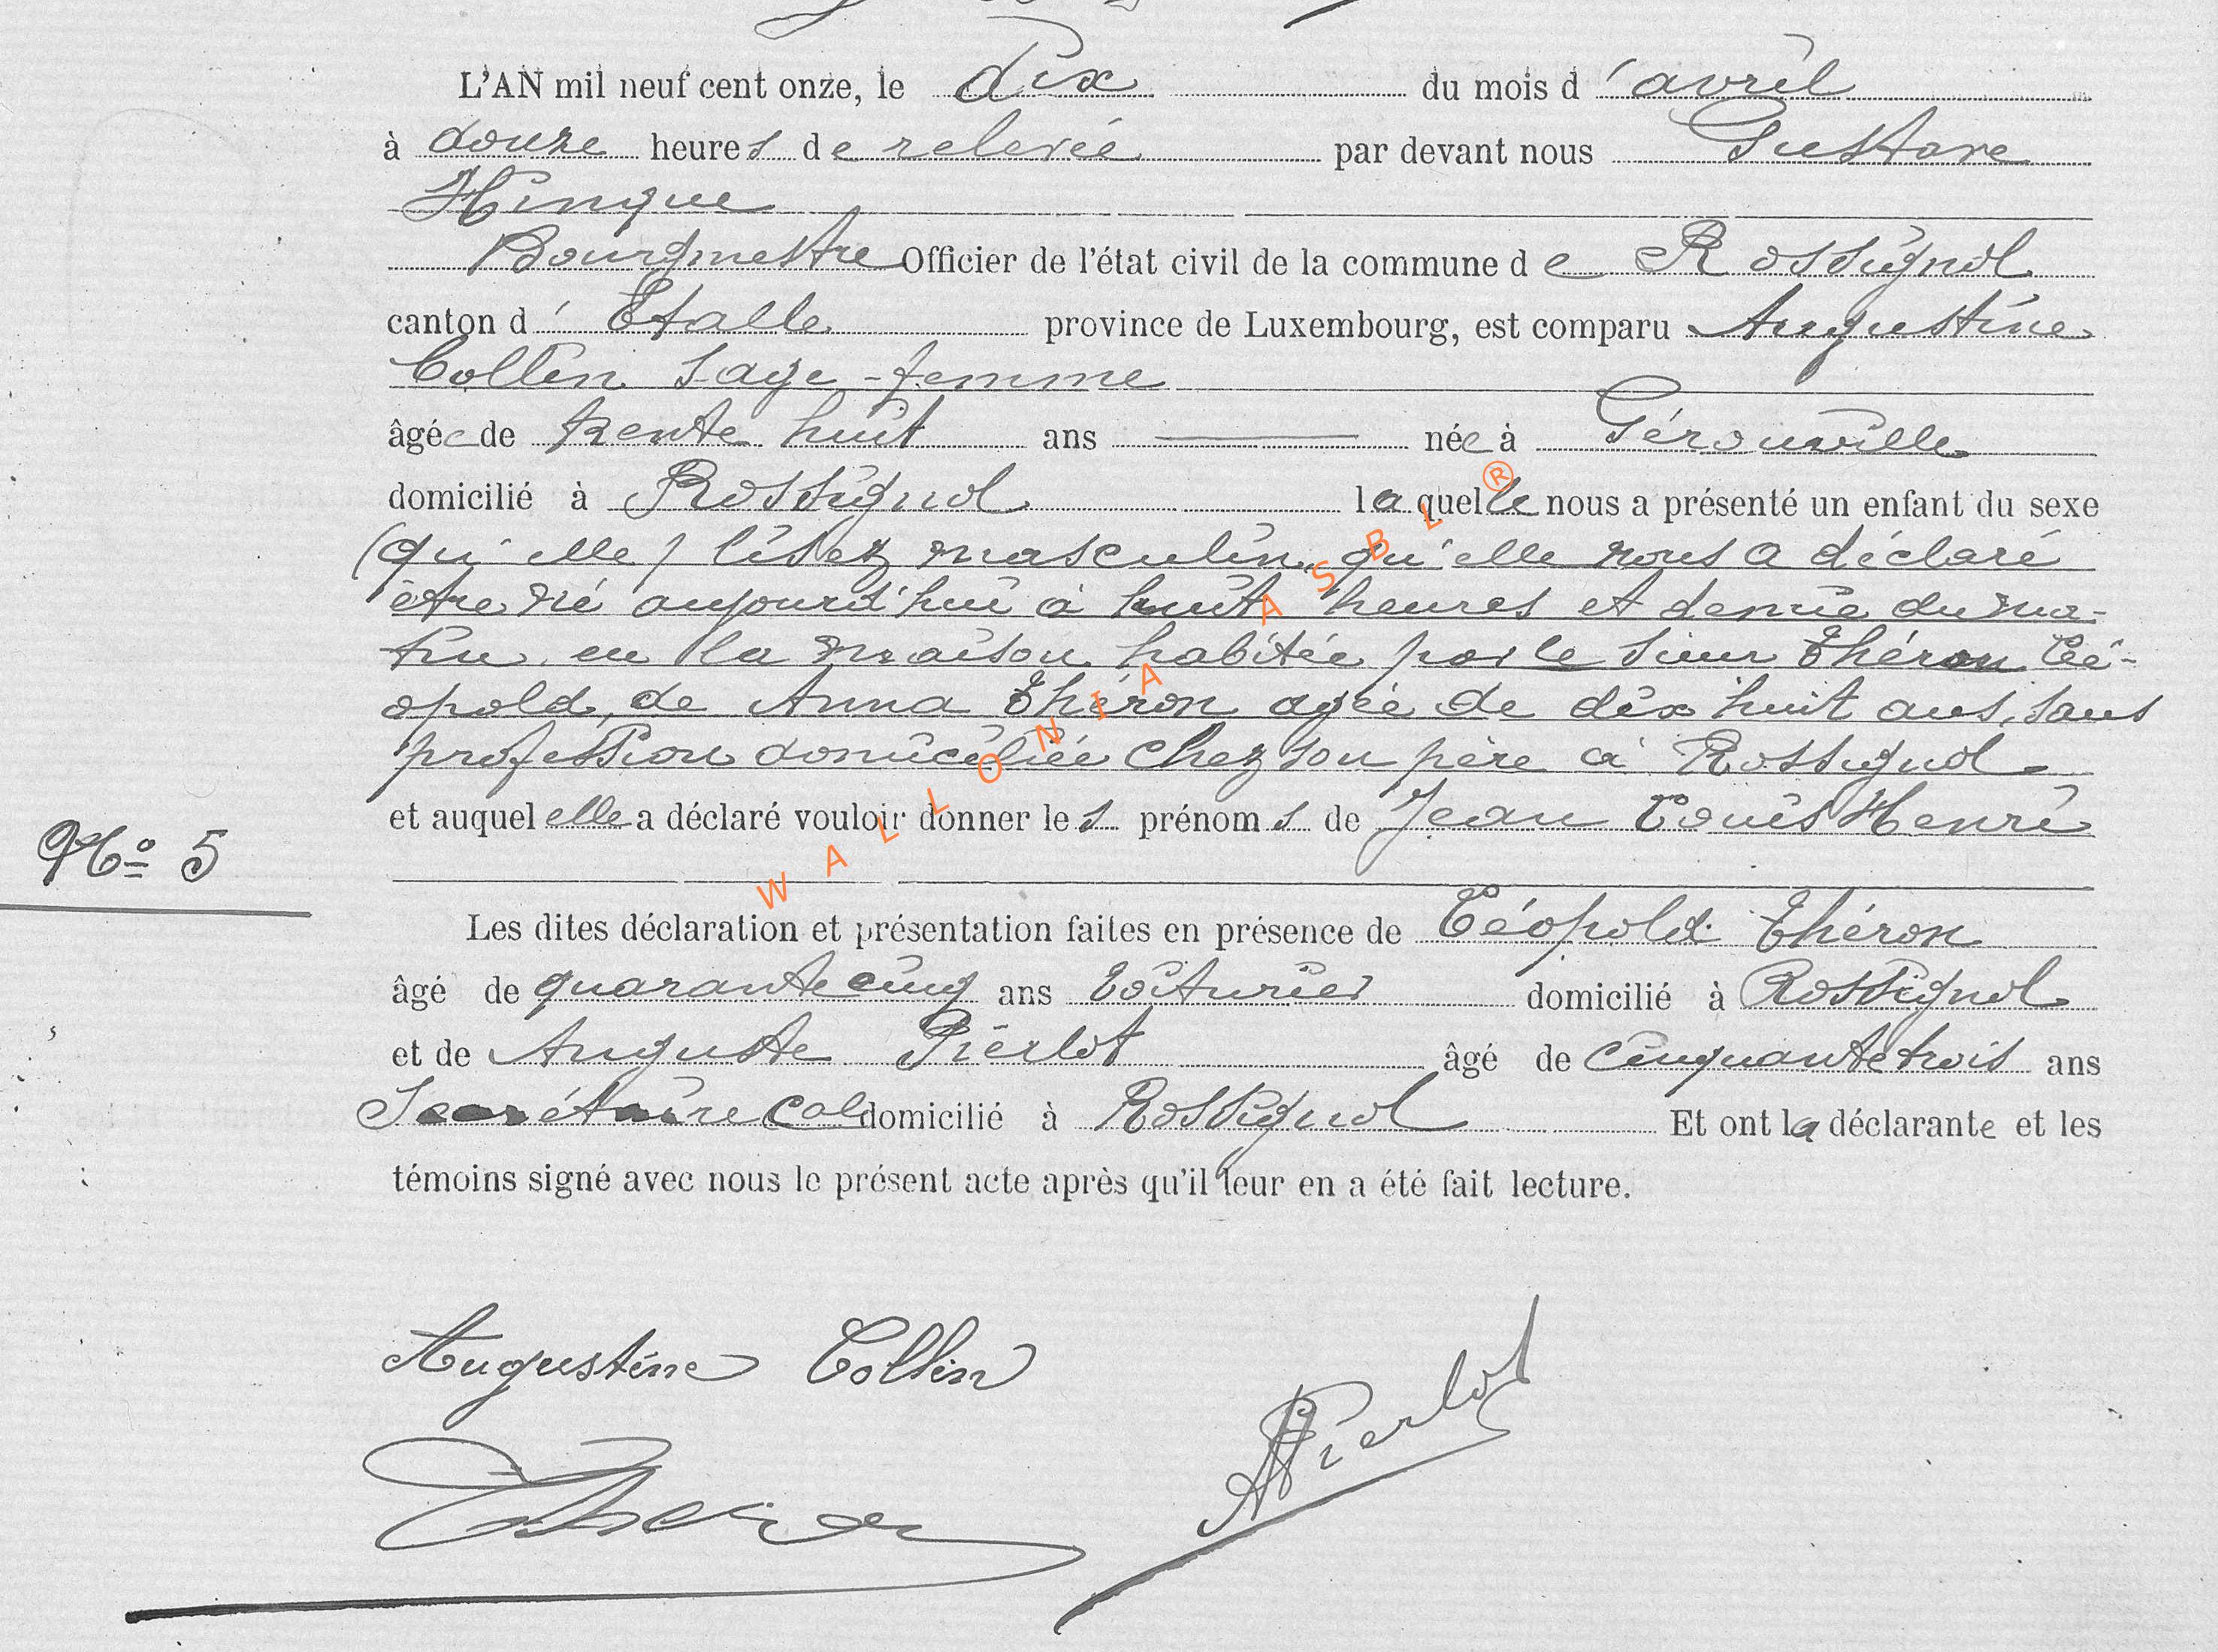 L'AN mil neuf cent onze, le dix du mois d'avril
à douze heures de relevée par devant nous Gustave
Hinque
Bourgmestre Officier de l'état civil de la commune de Rossignol
canton d'Etalle province de Luxembourg, est comparu Augustine
Collin sage-femme
âgée de trente huit ans née à Gérouville
domicilié à Rossignol laquelle nous a présenté un enfant du sexe
(qu'elle) lisez masculin, qu'elle nous a déclaré
être né aujourd'hui à huit heures et demie du ma-
tin en la maison habitée par le sieur Théron Lé-
opold, de Anna Théron agée de dix huit ans, sans
profession domiciliée chez son père à Rossignol
et auquel elle a déclaré vouloir donner les prénoms de Jean Louis Henri
No 5
Les dites déclaration et présentation faites en présence de Léopold Théron
âgé de quarante cinq ans voiturier domicilié à Rossignol
et de Auguste Pierlot âgé de cinquante trois ans
Secrétaire cal domicilié à Rossignol Et ont la déclarante et les
témoins signé avec nous le présent acte après qu'il leur en a été fait lecture.
Augustine Collin
APierlot
Theron
WALLONIA ASBL ®